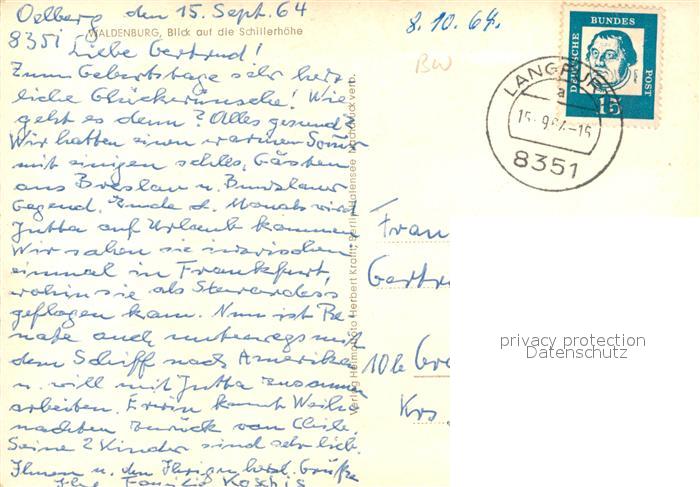 Oelberg den 15. Sept. 64
8351
WALDENBURG, Blick auf die Schillerhöhe
8.10.64.
Liebe Gertrud!
Zum Geburtstage sehr herz-
liche Glückwünsche! Wie
geht es denn? Alles gesund?
Wir hatten einen warmen Sommer
mit einigen schles. Gästen
aus Breslau u. Bunzlauer
Gegend. Ende d. Monats wird
Jutta auf Urlaub kommen
Wir sahen sie inzwischen
einmal in Frankfurt,
wohin sie als Stewardess
geflogen kam. Nun ist Re-
nate auch unterwegs mit
dem Schiff nach Amerika
u. will mit Jutta zusammen
arbeiten. Erwin kommt Weih-
nachten zurück von Chile.
Seine 2 Kinder sind sehr lieb.
Ihnen u. den Ihrigen herzl. Grüße
Ihre Familie
BW
DEUTSCHE BUNDES POST
15
8351
Verlag Heimatfoto Herbert Kraft, Berlin-Halensee Nachdruckverb.
Frau
Gertr
10 b Gr
Krs
privacy protection
Datenschutz